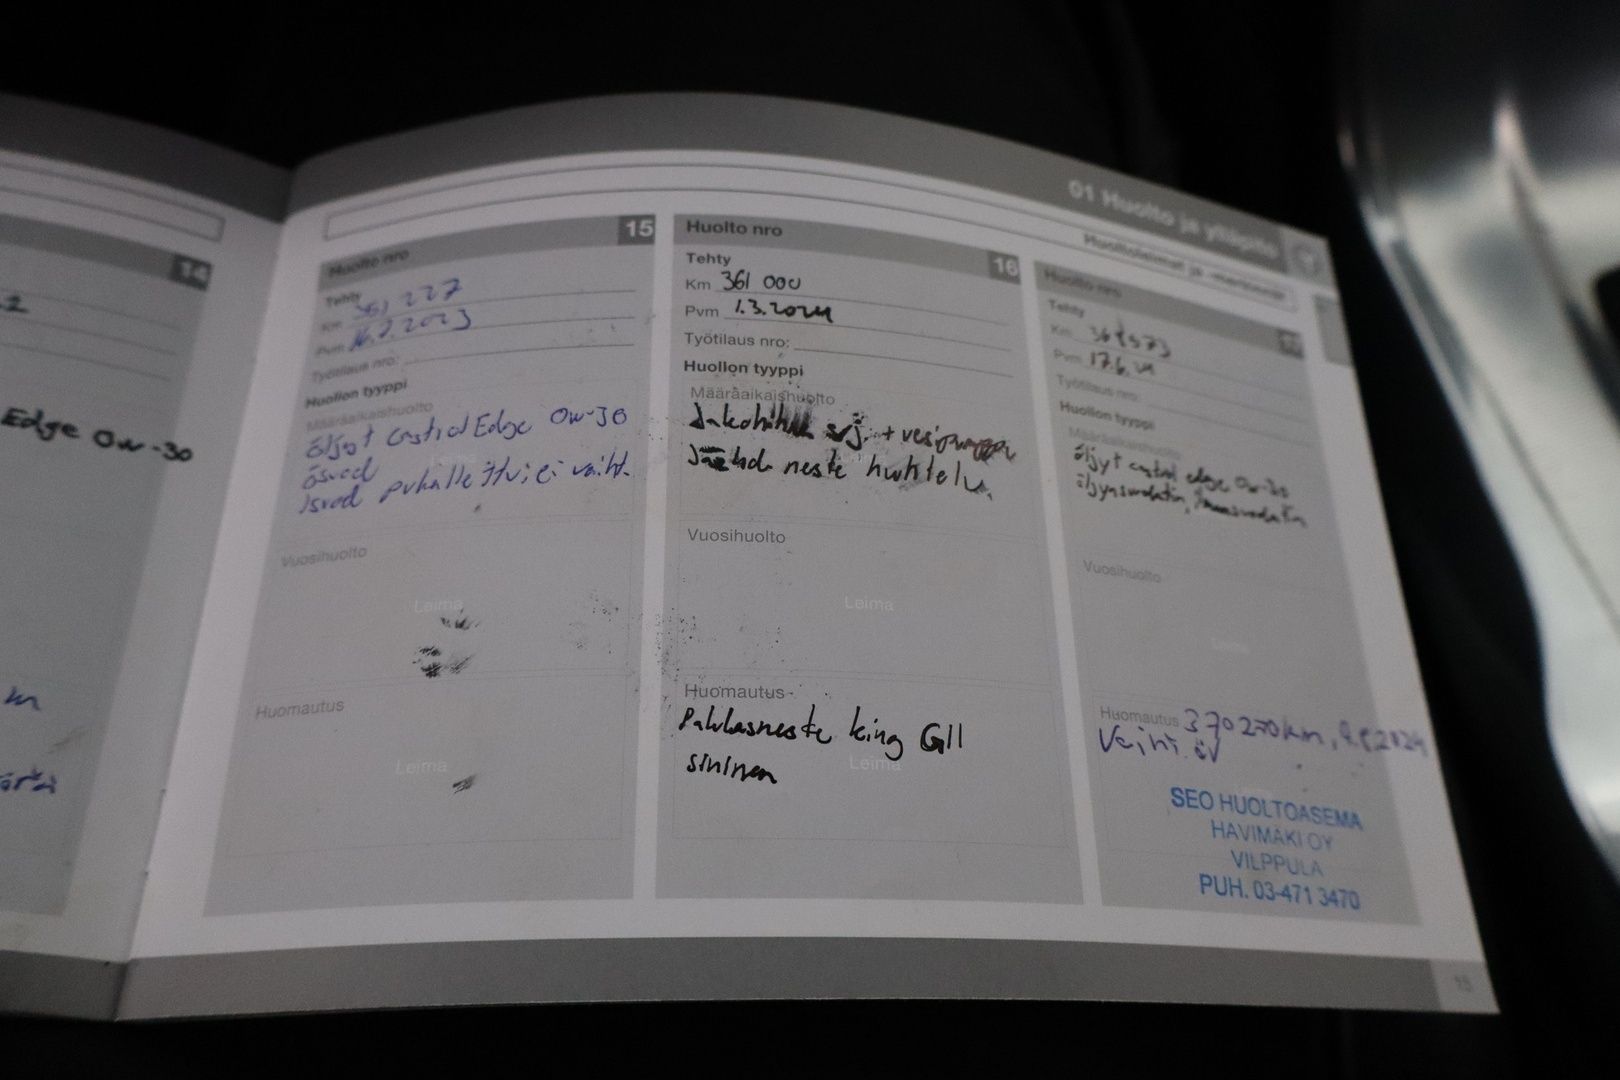 01 Huolto ja ylläpito
Huoltoleimat ja -merkinnät
14
Edge 0w-30
Huolto nro 15
Tehty
Km 351 227
Pvm 16.2.2023
Työtilaus nro:
Huollon tyyppi
Määräaikaishuolto
öljyt castrol Edge 0w-30
ösuod
isuod puhallettu, ei vaiht.
Vuosihuolto
Leima
Huomautus
Leima
Huolto nro 16
Tehty
Km 361 000
Pvm 1.3.2024
Työtilaus nro:
Huollon tyyppi
Määräaikaishuolto
Jakohihna srj. + vesipumppu
Jäähd neste huuhtelu
Vuosihuolto
Leima
Huomautus
Pakkasneste king G11
sininen
Leima
Huolto nro 17
Tehty
Km
Pvm 17.6.24
Työtilaus nro:
Huollon tyyppi
Määräaikaishuolto
öljyt castrol edge 0w-30
öljynsuodatin,
Vuosihuolto
Leima
Huomautus 370270km,
Vaiht. öv
SEO HUOLTOASEMA
HAVIMÄKI OY
VILPPULA
PUH. 03-471 3470
15